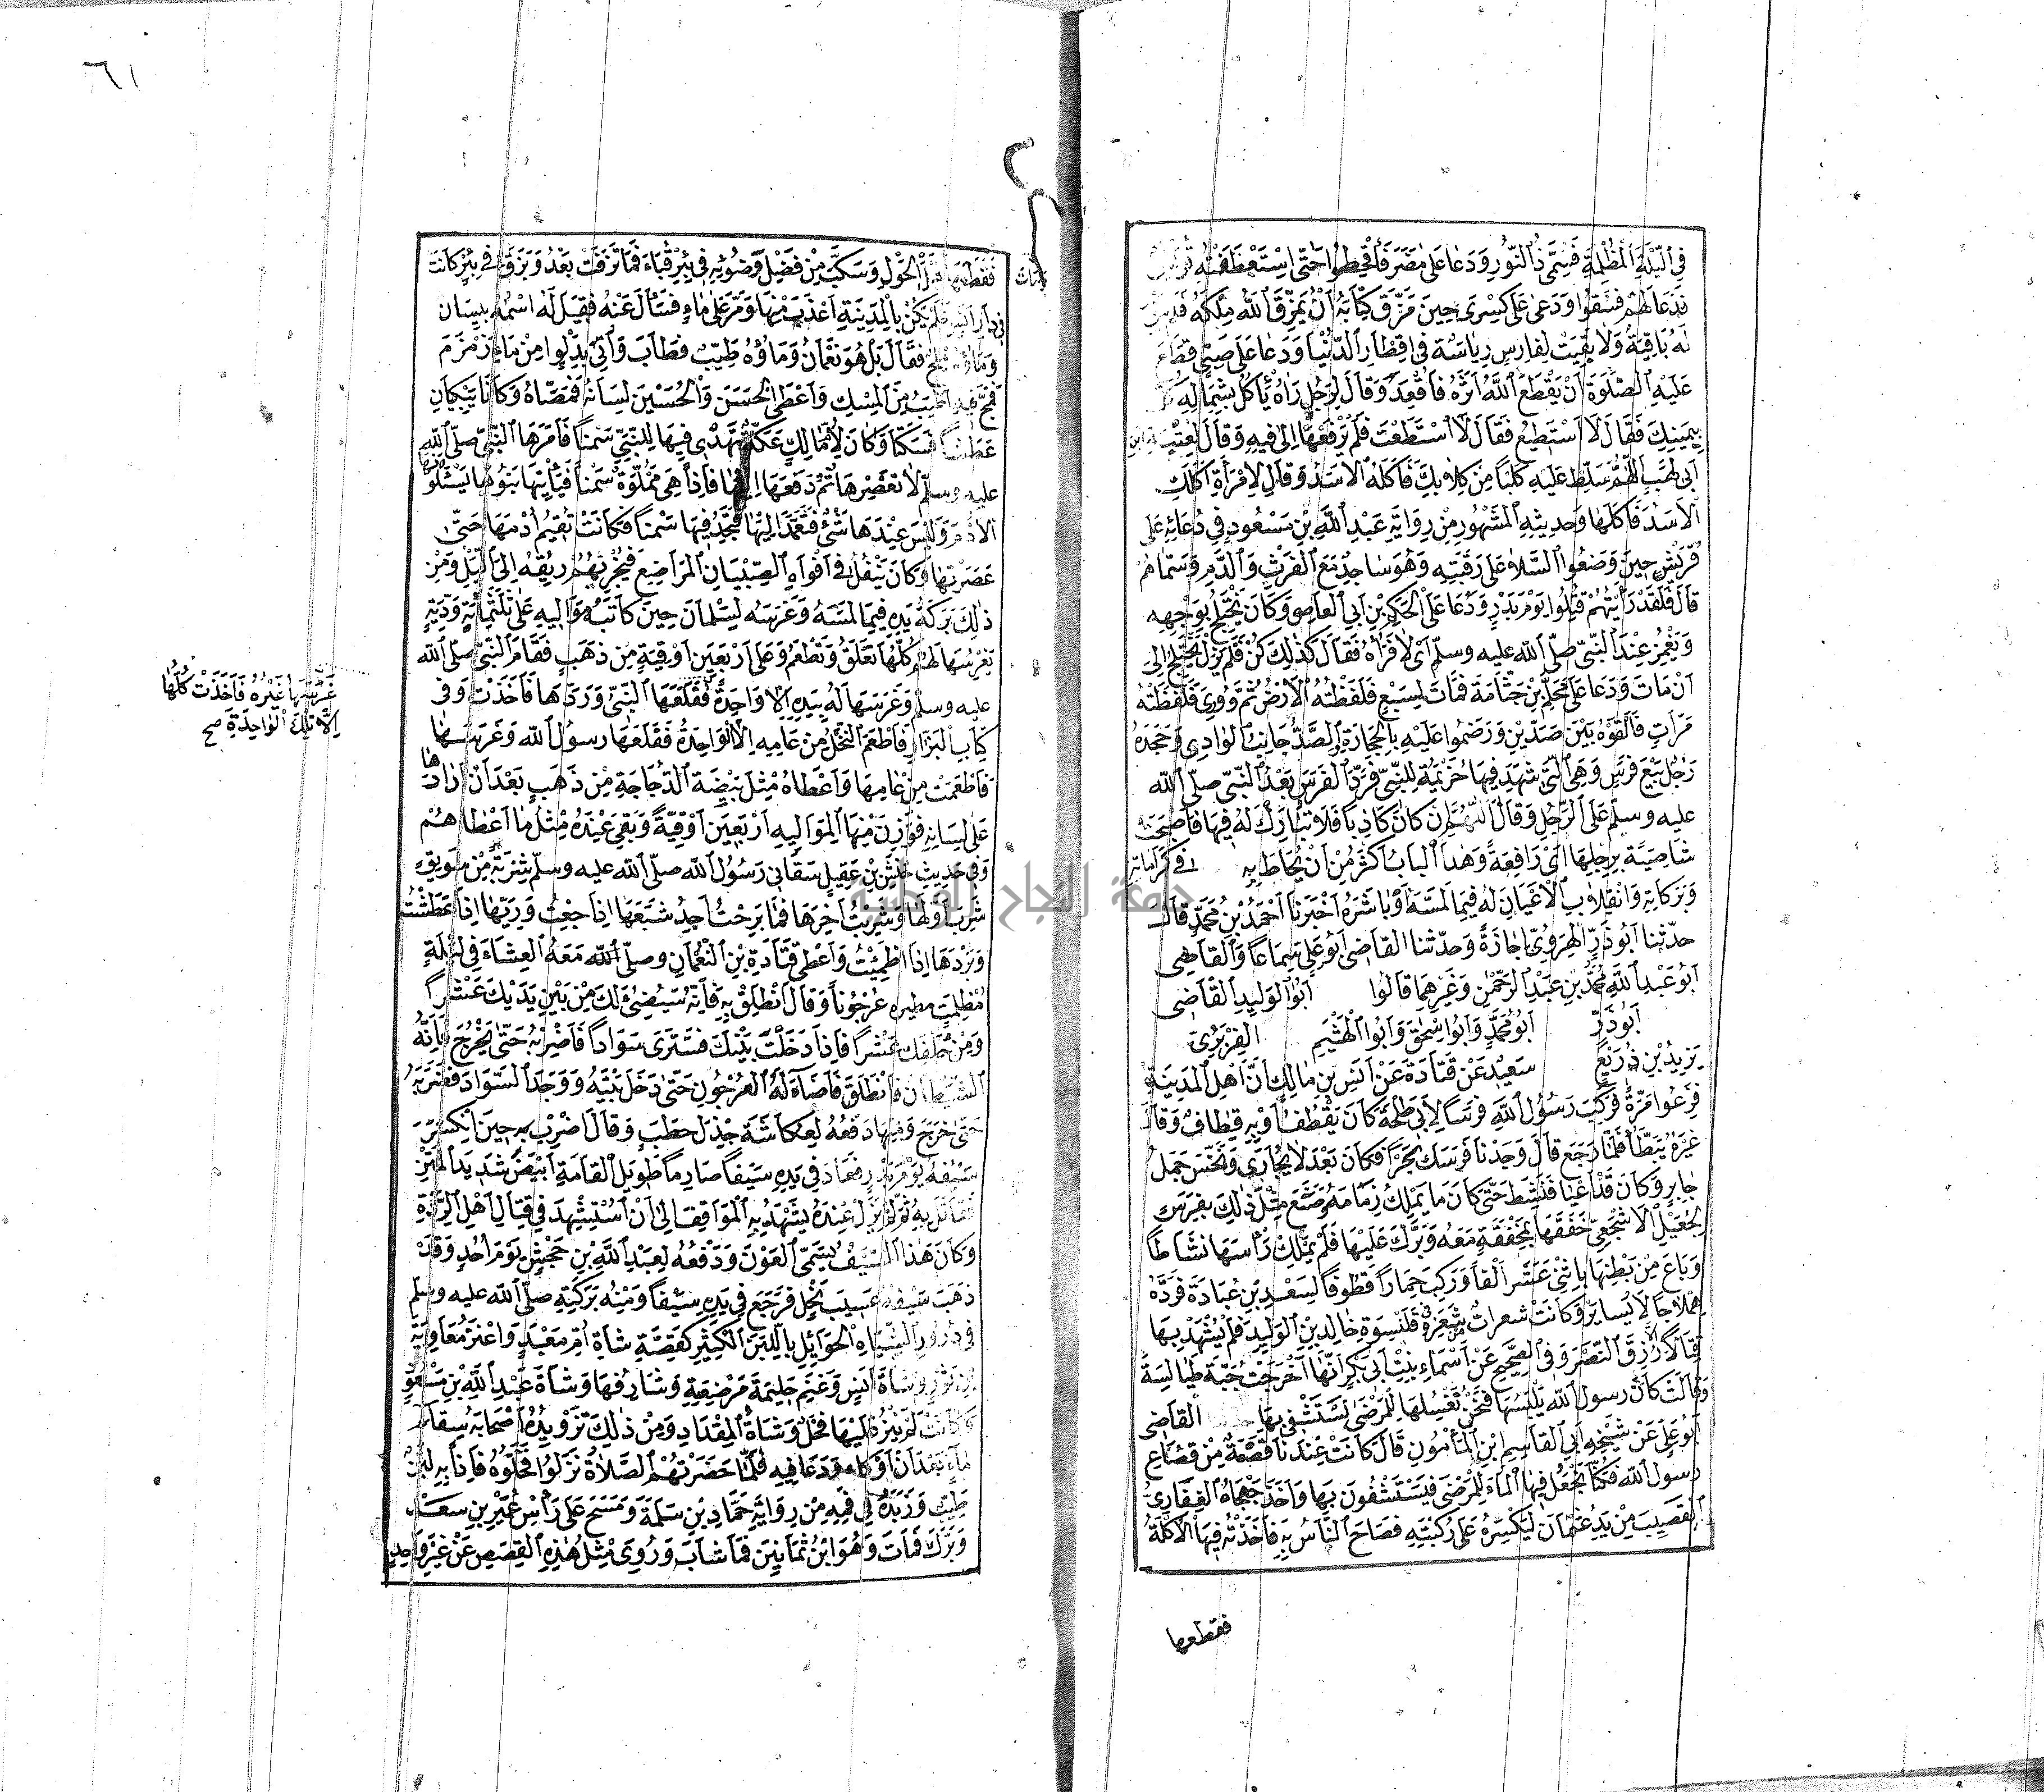 في الليلة المظلمة فسمى ذا النور ودعا على مضر فأقحطوا حتى استعطفته قريش
فدعا لهم فسقوا ودعى على كسرى حين مزق كتابه ان يمزق الله ملكه فلم تبق
له باقية ولا بقيت لفارس رياسة في اقطار الدنيا ودعا على صبي قطع
عليه الصلوة ان يقطع الله اثره فاقعد وقال لرجل راه يأكل بشماله كل
بيمينك فقال لا استطيع فقال لا استطعت فلم يرفعها الى فيه وقال لعتبة بن
ابي لهب اللهم سلط عليه كلبا من كلابك فأكله الاسد وقال لامرأة اكلك
الاسد فأكلها وحديثه المشهور من رواية عبد الله بن مسعود في دعائه على
قريش حين وضعوا السلا على رقبته وهو ساجد مع الفرث والدم وسماهم
قال فلقد رأيتهم قتلوا يوم بدر ودعا على الحكم بن ابي العاص وكان يختلج بوجهه
ويغمز عند النبي صلى الله عليه وسلم اى لا فراه فقال كذلك كن فلم يزل يختلج الى
ان مات ودعا على محلم بن جثامة فمات لسبع فلفظته الارض ثم ووري فلفظته
مرات فالقوه بين صدين ورضموا عليه بالحجارة الصد جانب الوادي وجحده
رجل بيع فرس وهي التي شهد فيها خزيمة للنبي فرد الفرس بعد النبي صلى الله
عليه وسلم على الرجل وقال اللهم ان كان كاذبا فلا تبارك له فيها فاصبحت
شاصية برجلها اي رافعة وهذا الباب اكثر من ان يحاط به في كراماته
وبركاته وانقلاب الاعيان له فيما لمسه او باشره اخبرنا احمد بن محمد قال
حدثنا ابو ذر الهروي اجازة وحدثنا القاضي ابو علي سماعا والقاضي
ابو عبد الله محمد بن عبد الرحمن وغيرهما قالوا ابو الوليد القاضي
ابو ذر ابو محمد وابو اسحق وابو الهشيم الفربري
يزيد بن ذريع سعيد عن قتادة عن انس بن مالك ان اهل المدينة
فزعوا مرة فركب رسول الله فرسا لابي طلحة كان يقطف او به قطاف وقال
غيره يبطأ فلما رجع قال وجدنا فرسك بحرا فكان بعد لا يجارى ونخس جمل
جابر وكان قد اعيا فنشط حتى كان ما يملك زمامه وصنع مثل ذلك بفرس
لجعيل الاشجعي خفقها بمخفقة معه وبرك عليها فلم يملك رأسها نشاطا
وباع من بطنها باثني عشر الفا وركب حمارا قطوفا لسعد بن عبادة فرده
هملاجا لا يساير وكانت شعرات من شعره في قلنسوة خالد بن الوليد فلم يشهد بها
قتالا الا رزق النصر وفي الصحيح عن اسماء بنت ابي بكر انها اخرجت جبة طيالسة
وقالت كان رسول الله يلبسها فنحن نغسلها للمرضى نستشفي بها القاضي
ابو علي عن شيخه ابي القاسم ابن المأمون قال كانت عندنا قصعة من قصاع
رسول الله فكنا نجعل فيها الماء للمرضى فيستشفون بها واخذ جهجاه الغفاري
القضيب من يد عثمان ليكسره على ركبته فصاح الناس به فاخذته فيها الاكلة
فقطعها
٦١
فقطعها قبل الحول وسكب من فضل وضوئه في بئر قباء فما نزفت بعد وبزق في بئر كانت
في دار انس فلم يكن بالمدينة اعذب منها ومر على ماء فسأل عنه فقيل له اسمه بيسان
وماؤه ملح فقال بل هو نعمان وماؤه طيب فطاب واتي بدلو من ماء زمزم
فمج فيه اطيب من المسك واعطى الحسن والحسين لسانه فمصاه وكانا يبكيان
عطشا فسكتا وكان لام مالك عكة تهدي فيها للنبي سمنا فامرها النبي صلى الله
عليه وسلم لا تعصرها ثم دفعها اليها فاذا هي مملوة سمنا فيأتيها بنوها يسئلونها
الادم وليس عندها شئ فتعمد اليها فتجد فيها سمنا فكانت تقيم ادمها حتى
عصرتها وكان يتفل في افواه الصبيان المراضيع فيجزئهم ريقه الى الليل ومن
ذلك بركة يده فيما لمسه وغرسه لسلمان حين كاتبه مواليه على ثلثمائة ودية
يغرسها لهم كلها تعلق وتطعم وعلى اربعين اوقية من ذهب فقام النبي صلى الله
عليه وسلم وغرسها له بيده الا واحدة فقلعها النبي وردها فاخذت وفي
كتاب البزار فاطعم النخل من عامه الا الواحدة فقلعها رسول الله وغرسها
فاطعمت من عامها واعطاه مثل بيضة الدجاجة من ذهب بعد ان ادارها
على لسانه فوزن منها لمواليه اربعين اوقية وبقي عنده مثل ما اعطاهم
وفي حديث حنش بن عقيل سقاني رسول الله صلى الله عليه وسلم شربة من سويق
شرب اولها وشربت آخرها فما برحت اجد شبعها اذا جعت وريها اذا عطشت
وبردها اذا ظمئت واعطى قتادة بن النعمان وصلى الله معه العشاء في ليلة
مظلمة مطيرة عرجونا وقال انطلق به فانه سيضئ لك من بين يديك عشرا
ومن خلفك عشرا فاذا دخلت بيتك فسترى سوادا فاضربه حتى يخرج فانه
الشيطان فانطلق فاضاء له العرجون حتى دخل بيته ووجد السواد فضربه
حتى خرج ومنها دفعه لعكاشة جذل حطب وقال اضرب به حين انكسر
سيفه يوم بدر فعاد في يده سيفا صارما طويل القامة ابيض شديد المتن
فقاتل به ثم لم يزل عنده يشهد به المواقف الى ان استشهد في قتال اهل الردة
وكان هذا السيف يسمى العون ودفعه لعبد الله بن جحش يوم احد وقد
ذهب سيفه عسيب نخل فرجع في يده سيفا ومنه بركته صلى الله عليه وسلم
في درور الشياه الحوائل باللبن الكثير كقصة شاة ام معبد واعنز معاوية
بن ثور وشاة انس وغنم حليمة مرضعة وشارفها وشاة عبد الله بن مسعود
وكانت لم ينز عليها فحل وشاة المقداد ومن ذلك تزويده اصحابه سقاء
ماء بعد ان اوكاه ودعا فيه فلما حضرتهم الصلاة نزلوا فحلوه فاذا به لبن
طيب وزبدة في فمه من رواية حماد بن سلمة ومسح على رأس عمير بن سعد
وبرك فمات وهو ابن ثمانين فما شاب وروى مثل هذه القصص عن غير واحد
غرسها غيره فاخذت كلها
الا تلك الواحدة صح
جامعة النجاح الوطنية